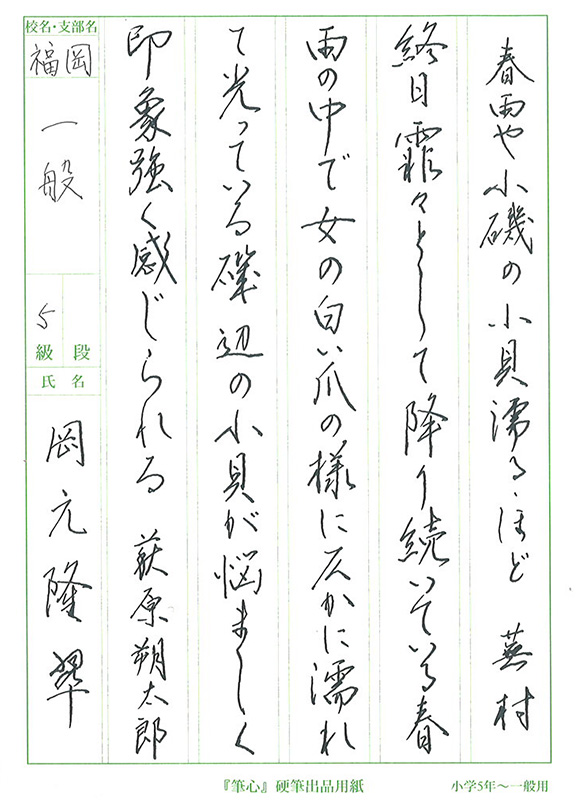 春雨や小磯の小貝濡るゝほど　蕪村
終日霏々として降り続いている春
雨の中で女の白い爪の様に仄かに濡れ
て光っている磯辺の小貝が悩ましく
印象強く感じられる　萩原朔太郎
校名・支部名
福岡
一般
5
級 段
氏名
岡元隆翠
『筆心』硬筆出品用紙
小学5年〜一般用